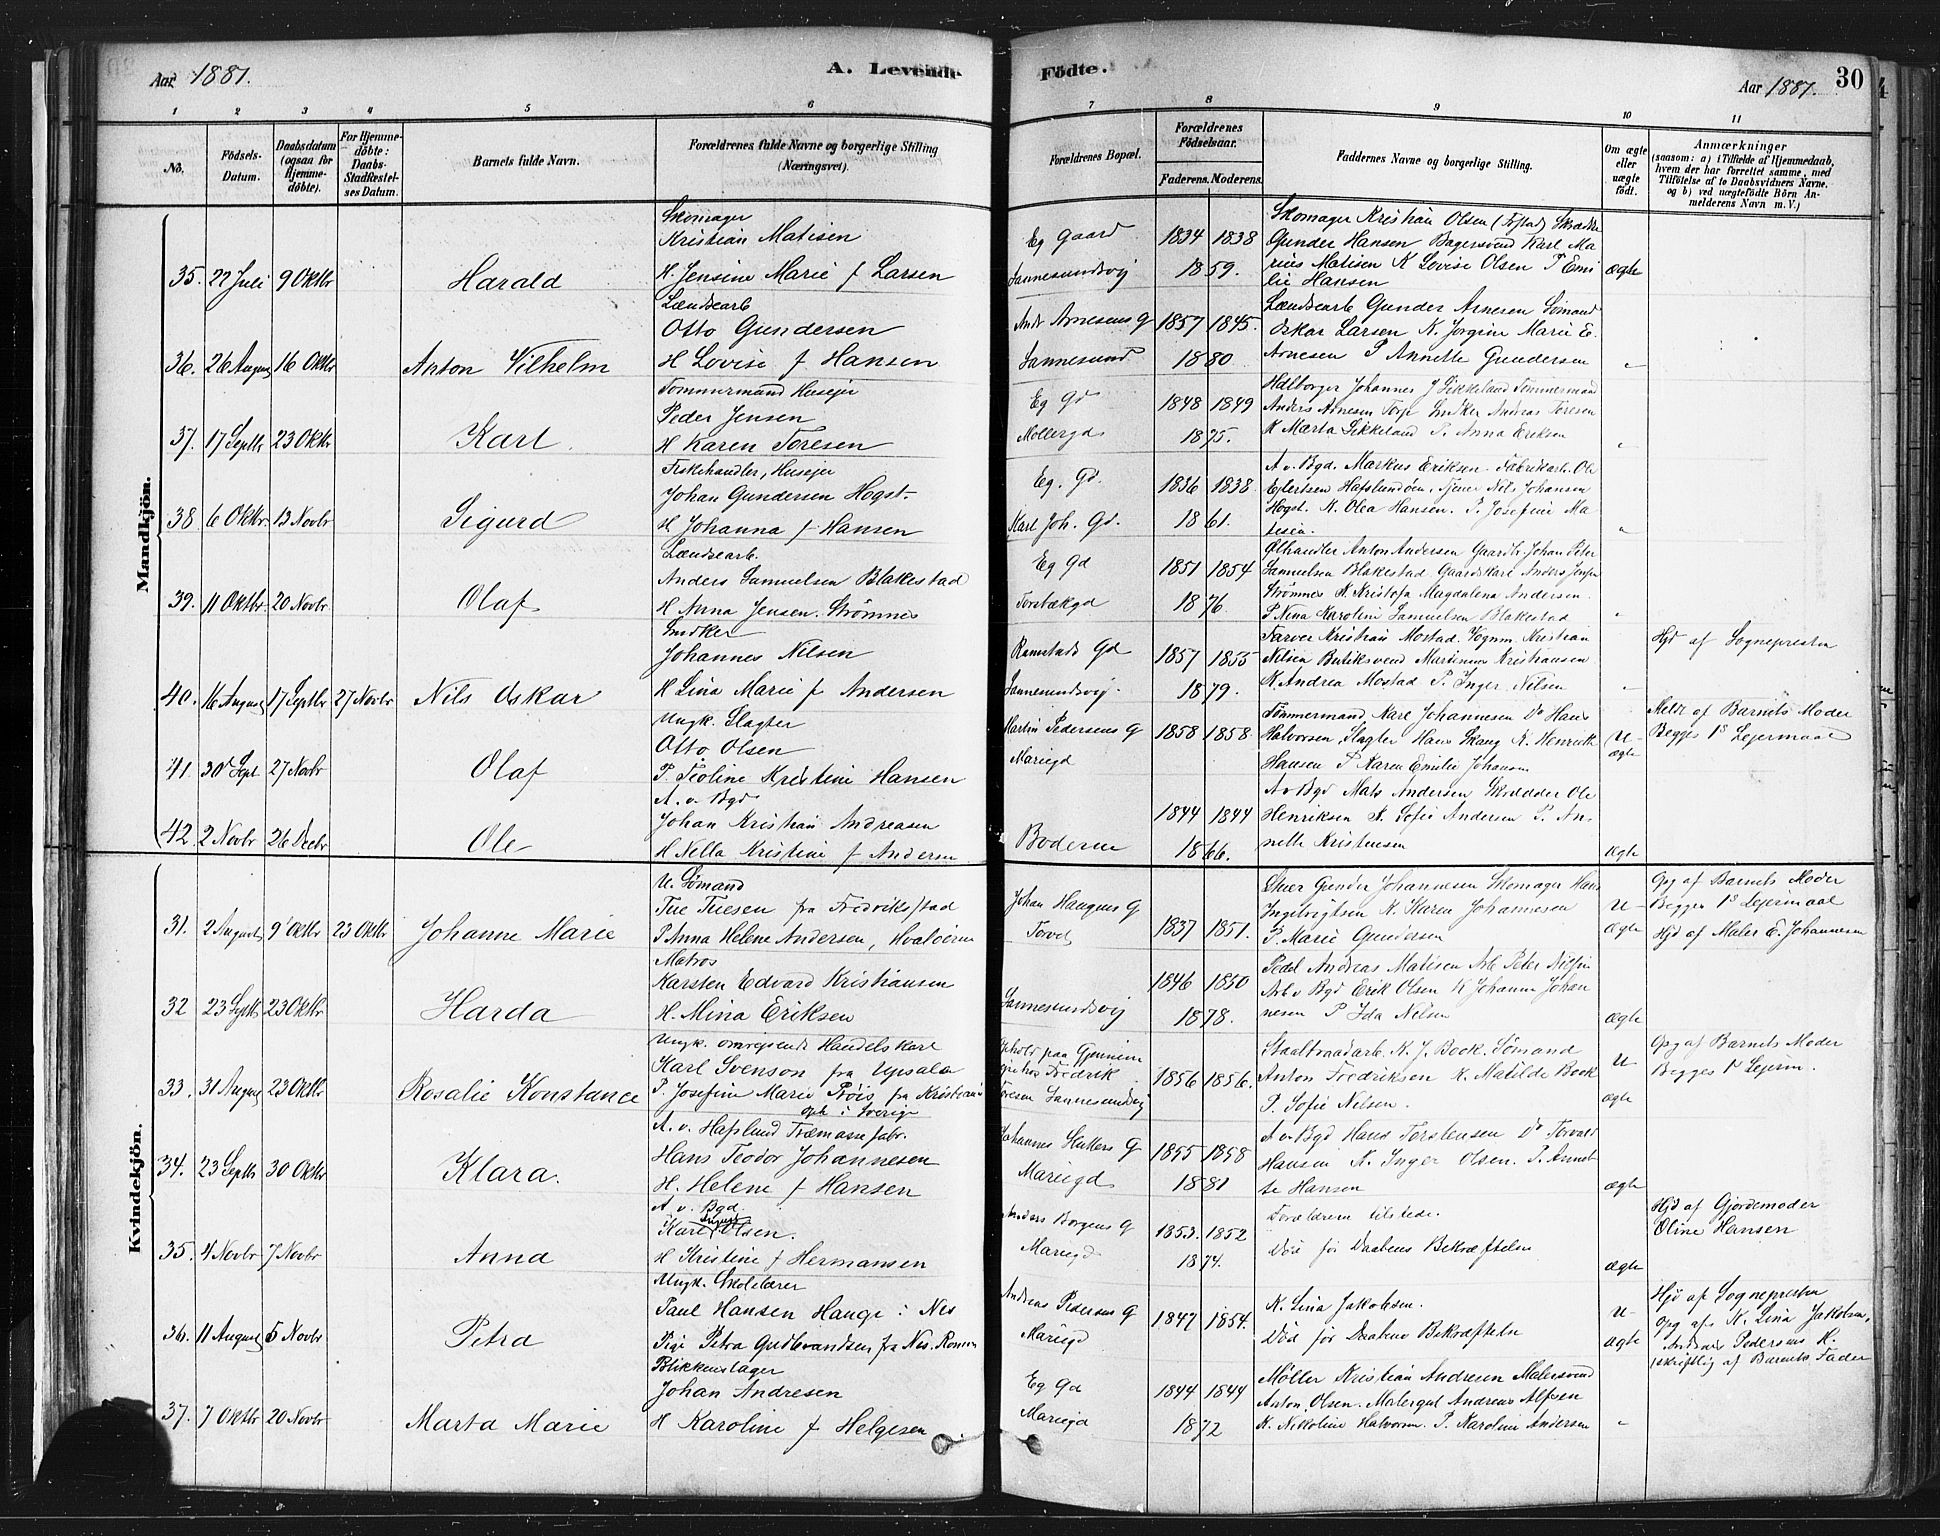 Aar 1881.
A. Levende Födte.
Aar 1881. 30
1 2 3 4 5 6 7 8 9 10 11
No.
Födsels-Datum.
Daabsdatum (ogsaa for Hjemmedöbte).
For Hjemmedöbte: Daabs-Stadfæstelses Datum.
Barnets fulde Navn.
Forældrenes fulde Navne og borgerlige Stilling (Næringsvei).
Forældrenes Bopæl.
Forældrenes Födselsaar.
Faderens. Moderens.
Faddernes Navne og borgerlige Stilling.
Om ægte eller uægte födt.
Anmærkninger
(saasom: a) i Tilfælde af Hjemmedaab, hvem der har forrettet samme, med Tilföielse af to Daabsvidners Navne, og b) ved uægtefödte Börn Anmelderens Navn m. V.)
Mandkjön.
35. 22 Juli 9 Oktbr Harald
Skomager
Kristian Matisen
H. Jensine Marie f Larsen
Eg Gaard
Sannesundsvej
1834 1838
1859.
Skomager Kristian Olsen
Gunder Hansen Bagersvend Karl Ma
rius Matisen K Lovise Olsen P Emi
lie Hansen
ægte
36. 26 August 16 Oktbr Anton Vilhelm
Lændsearb
Otto Gundersen
H Lovise f Hansen
Andr Arnesens G
Sannesund
1857 1845.
1880
Lændsearb Gunder Arnesen Sömand
Oskar Larsen K. Jörgine Marie E.
Arnesen P Annette Gundersen
"
37. 17 Septbr 23 Oktbr Karl.
Tommermand Husejer
Peder Jensen
H Karen Toresen
Eg Gd
Mollergd
1848 1849
1875.
Johannes J Sikkeland Tömmermand
Anders Arnesen Torp Andras Toresen
K Marta Sikkeland P. Anna Eriksen
"
38 6 Oktbr 13 Novbr Sigurd
Fiskehandler, Husejer
Johan Gundersen Hogst
H Johanna f Hansen
Eg. Gd.
Karl Joh. Gd.
1836 1838.
1861.
A v. Bgd. Markus Eriksen Fabrikarb. Ole
Ejlertsen Hafslundöen, Tjener Nils Johansen
Hogst. K. Olea Hansen. P. Josefine Ma
tisen.
"
39. 11 Oktbr 20 Novbr Olaf
Lændsearb.
Anders Samuelsen Blakestad
H Anna Jensen Strömnes
Eg Gd
Torsbækgd
1851 1854
1876.
Ölhandler Anton Andersen Gaardbr. Johan Peter
Samuelsen Blakestad Gaardskarl Anders Jensen
Strömnes K Kristofa Magdalena Andersen.
P Nina Karoline Samuelsen Blakestad
"
40. 16 August 17 Septbr 27 Novbr Nils Oskar
Smdker
Johannes Nilsen
H Lina Marie f Andersen
Ramstads Gd
Sannesundsvej.
1857 1855
1879.
Farver Kristian Mostad. Vognm. Kristian
Nilsen Butiksvend Martinius Kristiansen
K Andrea Mostad P. Inger Nilsen
"
Hjd af Sognepresten
41. 30 Sept 27 Novbr Olaf
Ungk. Slagter
Otto Olsen
P. Teoline Kristine Hansen
Martin Pedersens G
Mariegd
1858 1858
Tömmermand Karl Johannesen Do Hans
Halvorsen, Slagter Hans Skaug K. Henrik
Hansen P Karen Emilie Johansen
U-
ægte
Meldt af Barnets Moder
Begges 1s Lejermaal
42. 2 Novbr 26 Decbr Ole
A. v. Bgd
Johan Kristian Andreasen
H Nella Kristine f Andersen
Boderne
1844 1844
1866.
A v Bgd Mats Andersen Skrædder Ole
Henriksen K Sofie Andersen P. An
nette Kristensen
ægte
Kvindekjön.
31. 2 August 9 Oktbr 23 Oktbr Johanne Marie
U. Sömand
Tue Tuesen fra Fredrikstad
P Anna Helene Andersen, Hvaløerne
Johan Haugens G
Torvet
1837 1851.
Gunder Johannesen Skomager Hans
Ingebrigtsen K. Karen Johannesen
P. Marie Gundersen
U-
ægte
Opg af Barnets Moder
Begges 1s Lejermaal
Hjd af Maler E. Johannesen
32 23 Septbr 23 Oktbr Harda
Matros
Karsten Edvard Kristiansen
H. Mina Eriksen
Sannesundsvej
1846 1850
1878.
Pedel Andreas Matisen Arb Peter Nilsen
Arb v Bgd Erik Olsen K Johanne Johan
nesen P Ida Nilsen
ægte
33. 31 August 23 Oktbr Rosalie Konstance
Ungk. omrejsende Handelskarl
Karl Svenson fra Upsala
P. Josefine Marie Röis fra Kristiania
oph i Sverige
Ophold paa Gjennem
rejse hos Fredrik
Toresen Sannesundsvej
1856 1856.
Staaltraadarb. K. J. Bock. Sömand
Anton Fredriksen K. Matilde Bock
P. Sofie Nilsen.
U-
ægte
Opg af Barnets Moder
Begges 1s Lejerm.
34. 23 Septbr 30 Oktbr Klara.
A. v. Hafslund Træmassefabr.
Hans Teodor Johannesen
H. Helene f Hansen
Johannes G
Mariegd
1855 1858
1881
A v. Bgd Hans Torstensen Do Torvald
Hansen K. Inger Olsen. P. Annet
te Hansen
ægte
35. 4 Novbr 7 Novbr Anna
A. v. Bgd.
Karl August Olsen.
H Kristine f Hermansen
Anders Borgens G
Mariegd
1853. 1852
1874.
Forældrene tilstede.
Död för Daabens Bekræftelse
ægte
Hjd af Gjordemoder
Oline Hansen
36. 11 August 5 Novbr Petra
Ungk. Skolelærer
Paul Hansen Hauge i Nes
Pige Petra Gudbrandsen fra Nes. Romer.
Andreas Pedersens G
Mariegd
1847 1854.
K. Lina Jakobsen.
Död för Daabens Bekræftelse
U-
ægte
Hjd af Sognepresten
Opg af K. Lina Jakobsen,
Andreas Pedersens K.
skriftlig af Barnets Fader
37. 7 Oktbr 20 Novbr Marta Marie
Blikkenslager
Johan Andresen
H Karoline f Helgesen
Eg Gd
Mariegd
1844 1844
1872
Møller Kristian Andersen Malersvend
Anton Olsen. Andreas Alfsen
K. Nikoline Halvorsen. P. Karoline Andersen
"